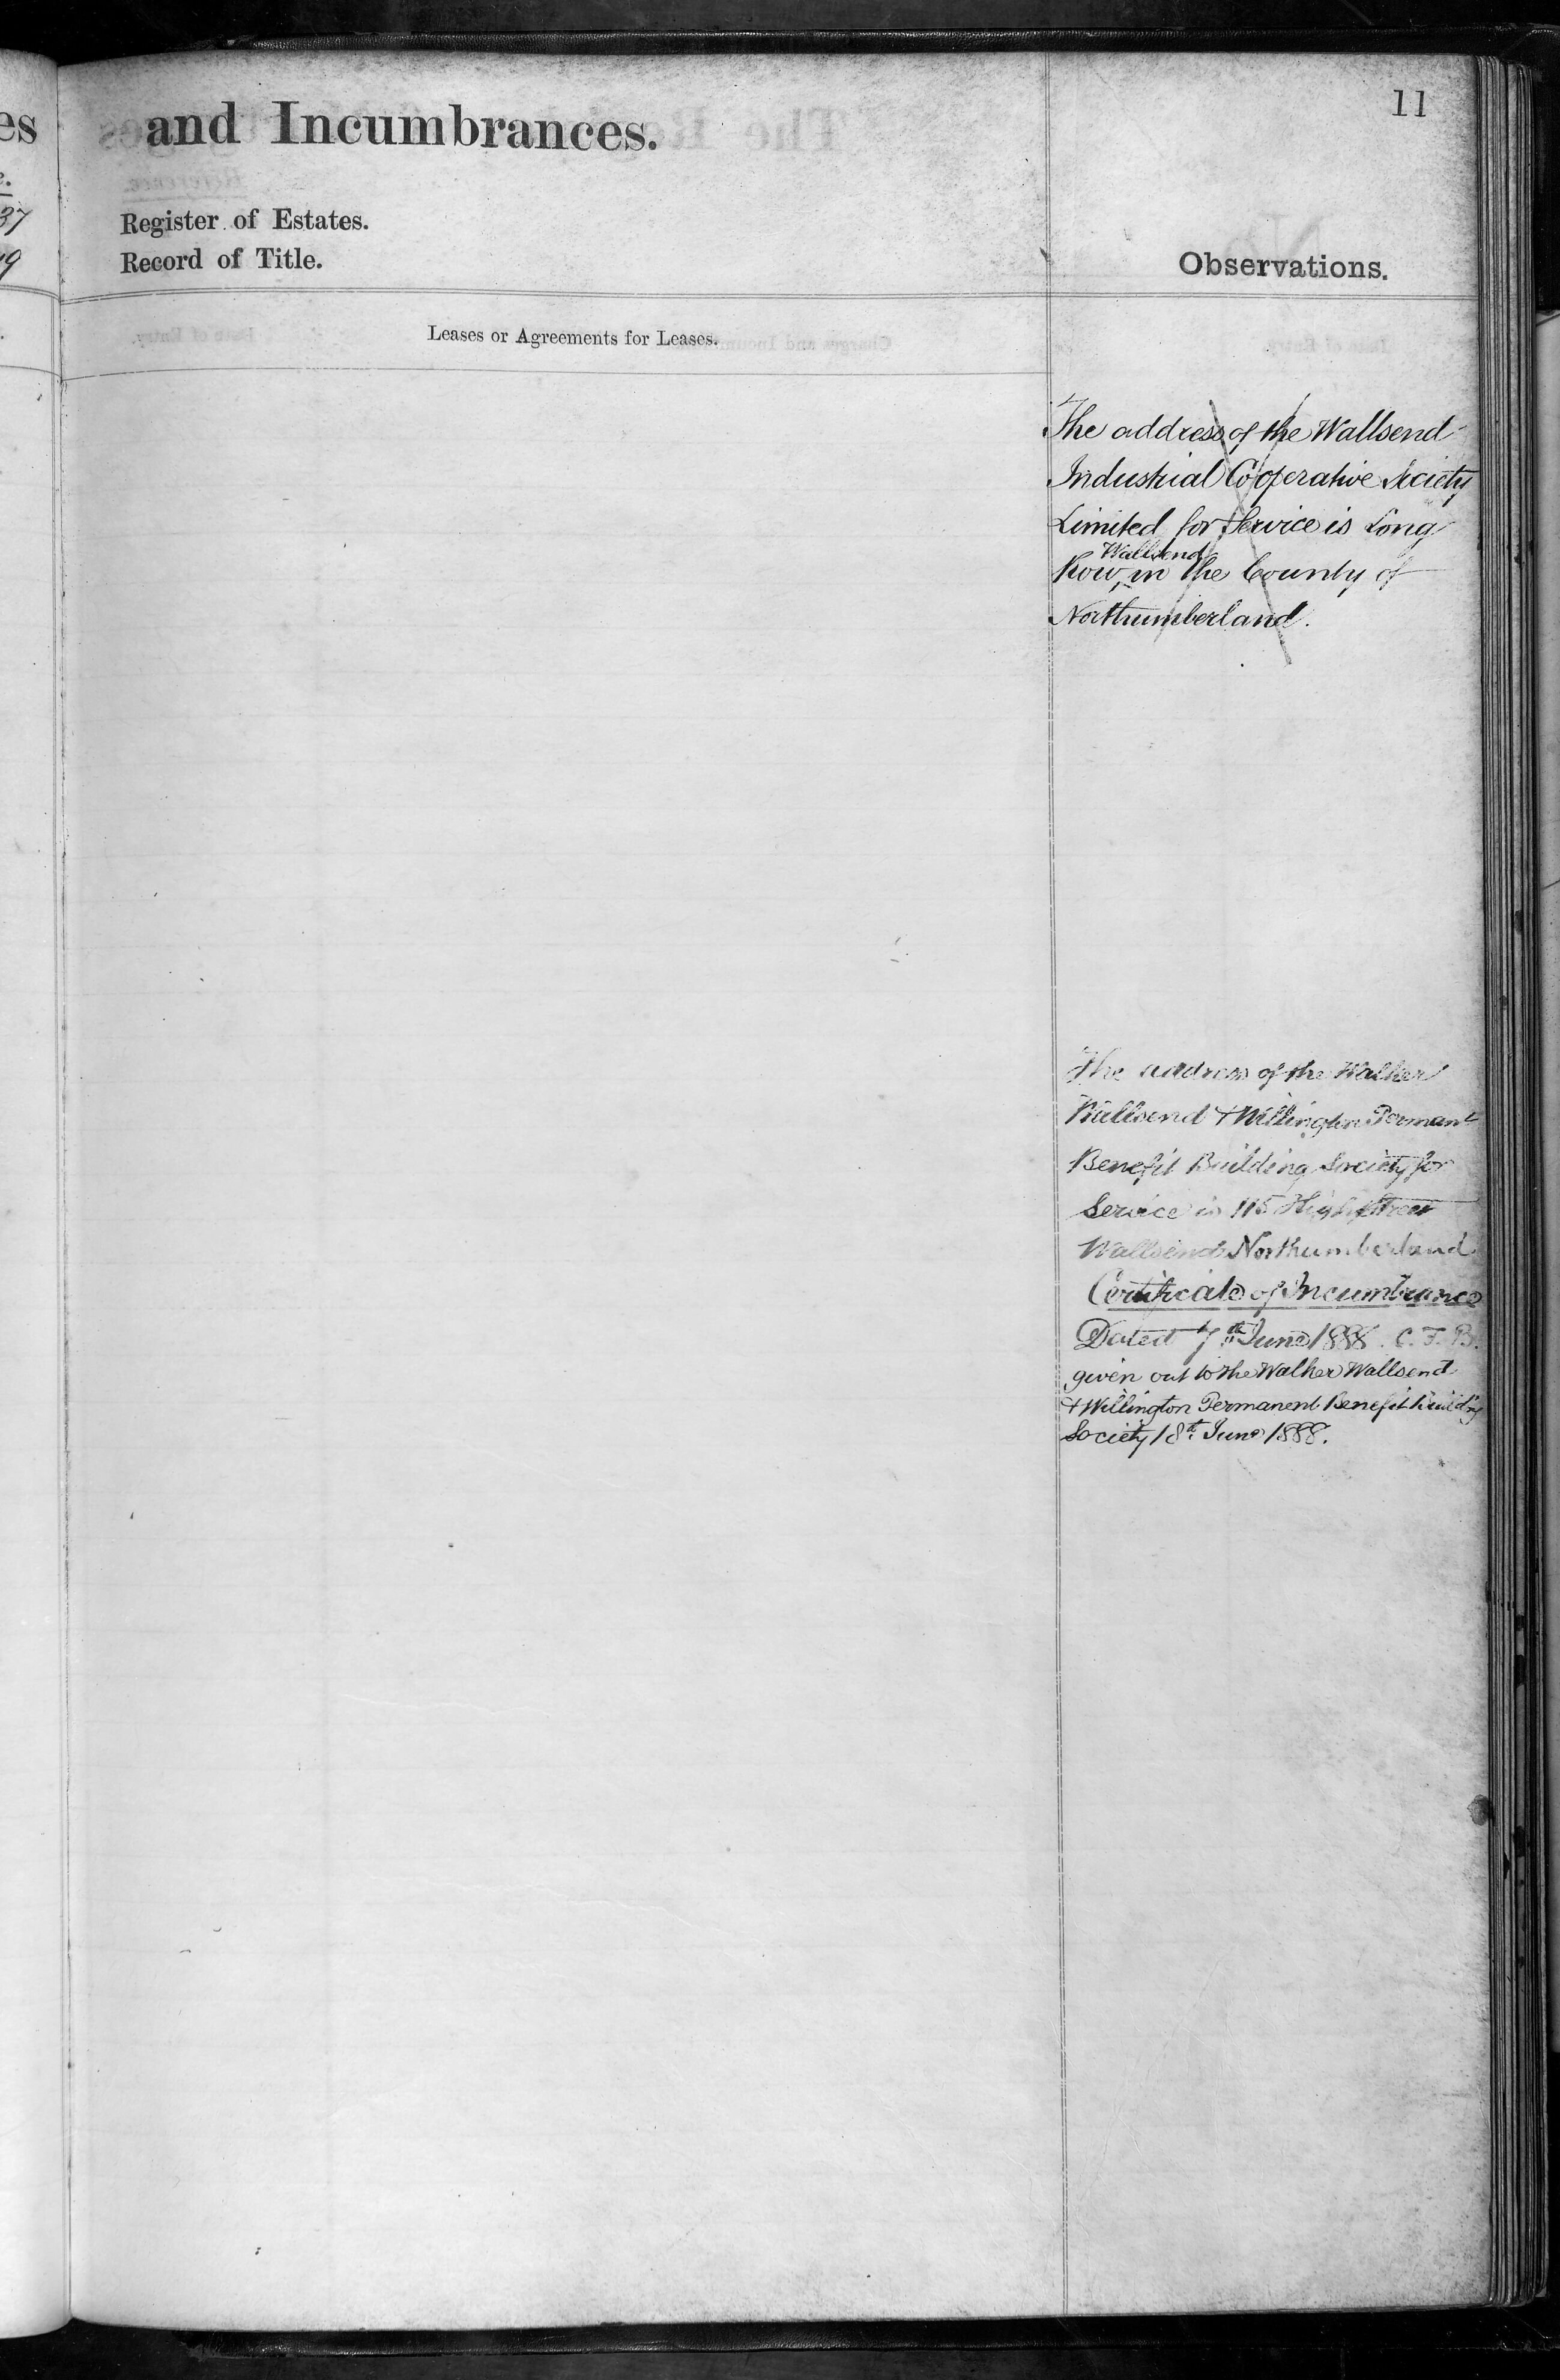 11
es
and Incumbrances.
37
Register of Estates.
Record of Title.
Observations.
Leases or Agreements for Leases.
The address of the Wallsend
Industrial Cooperative Society
Limited for Service is Long
Wallsend
Row, in the County of
Northumberland.
The address of the Walker
Wallsend & Willington Permant
Benefit Building Society for
Service is 115 High Street
Wallsend Northumberland
Certificate of Incumbrance
Dated 7th June 1888. C. F. B.
given out to the Walker Wallsend
& Willington Permanent Benefit Buildg
Society 18th June 1888.